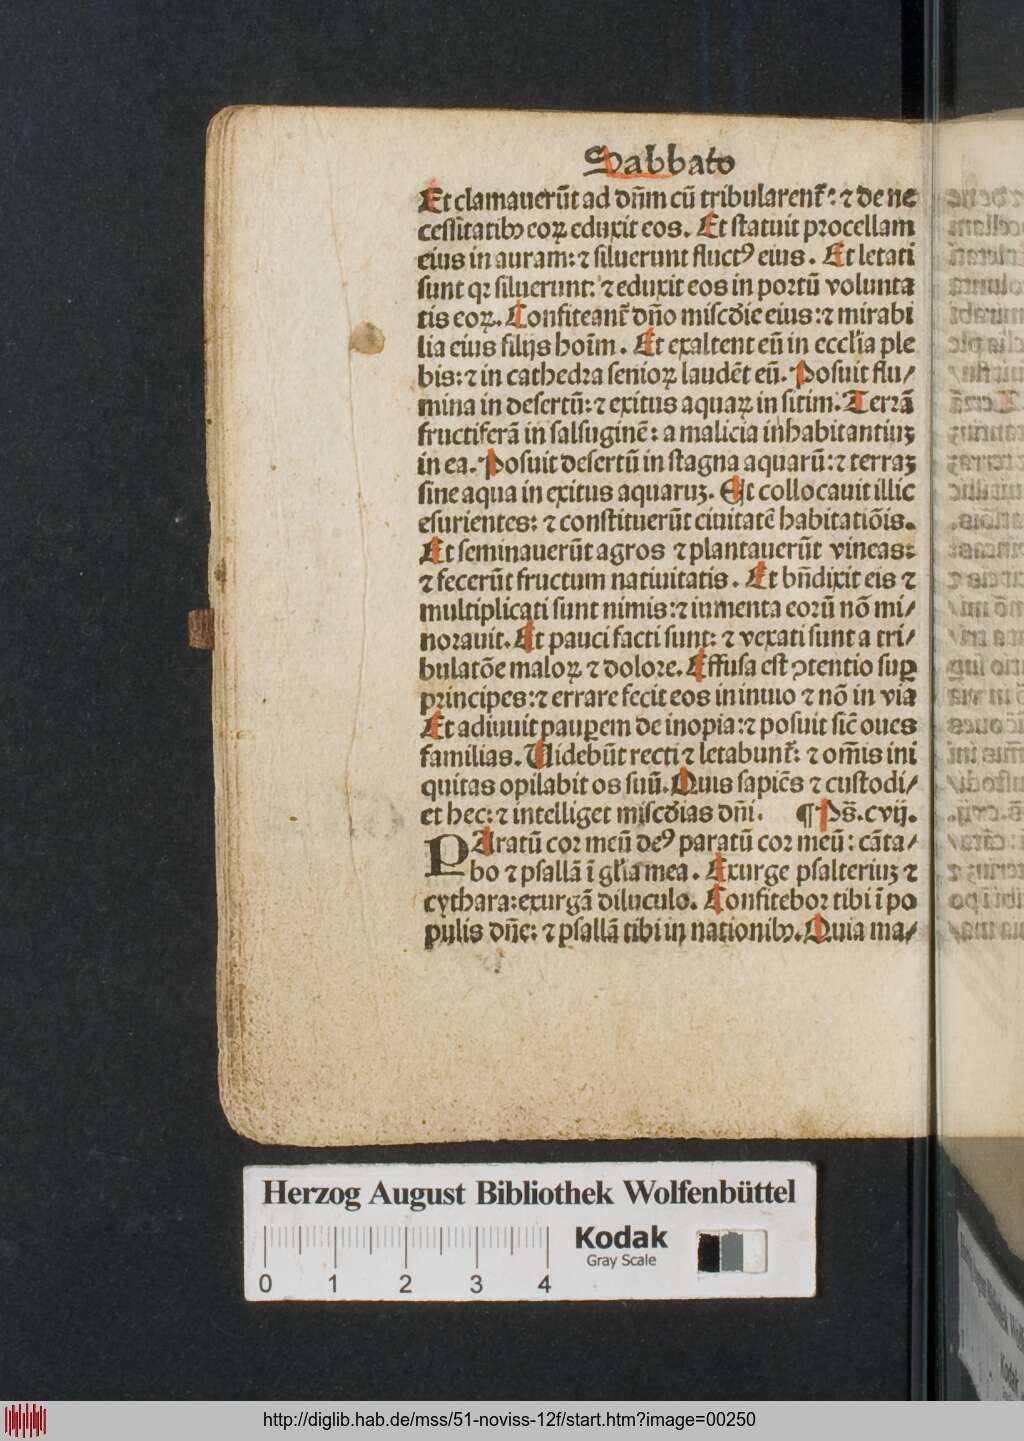 Sabbato
Et clamauerūt ad dn̄m cū tribularent᷑: ⁊ de ne
cessitatibꝰ eoꝝ eduxit eos. Et statuit procellam
eius in auram: ⁊ siluerunt fluctꝰ eius. Et letati
sunt qꝛ siluerunt: ⁊ eduxit eos in portū volunta
tis eoꝝ. Confiteant᷑ dn̄o misc̄die eius: ⁊ mirabi
lia eius filijs hoīm. Et exaltent eū in eccl̄ia ple
bis: ⁊ in cathedra senioꝝ laudēt eū. Posuit flu/
mina in desertū: ⁊ exitus aquaꝝ in sitim. Terrā
fructiferā in salsuginē: a malicia inhabitantiuꝫ
in ea. Posuit desertū in stagna aquarū: ⁊ terraꝫ
sine aqua in exitus aquaruꝫ. Et collocauit illic
esurientes: ⁊ constituerūt ciuitatē habitatiōis.
Et seminauerūt agros ⁊ plantauerūt vineas:
⁊ fecerūt fructum natiuitatis. Et bn̄dixit eis ⁊
multiplicati sunt nimis: ⁊ iumenta eorū nō mi/
norauit. Et pauci facti sunt: ⁊ vexati sunt a tri/
bulatōe maloꝝ ⁊ dolore. Effusa est ꝯtentio suꝑ
principes: ⁊ errare fecit eos in inuio ⁊ nō in via
Et adiuuit pauꝑem de inopia: ⁊ posuit sic̄ oues
familias. Uidebūt recti ⁊ letabunt᷑: ⁊ om̄is ini
quitas opilabit os suū. Quis sapiēs ⁊ custodi/
et hec: ⁊ intelliget misc̄dias dn̄i. ¶ Ps̄. cvij.
PAratū cor meū deꝰ paratū cor meū: cāta/
bo ⁊ psallā ī gl̄ia mea. Exurge psalteriuꝫ ⁊
cythara: exurgā diluculo. Confitebor tibi ī po
pulis dn̄e: ⁊ psallā tibi in nationibꝰ. Quia ma/
Herzog August Bibliothek Wolfenbüttel
Kodak
Gray Scale
0 1 2 3 4
http://diglib.hab.de/mss/51-noviss-12f/start.htm?image=00250